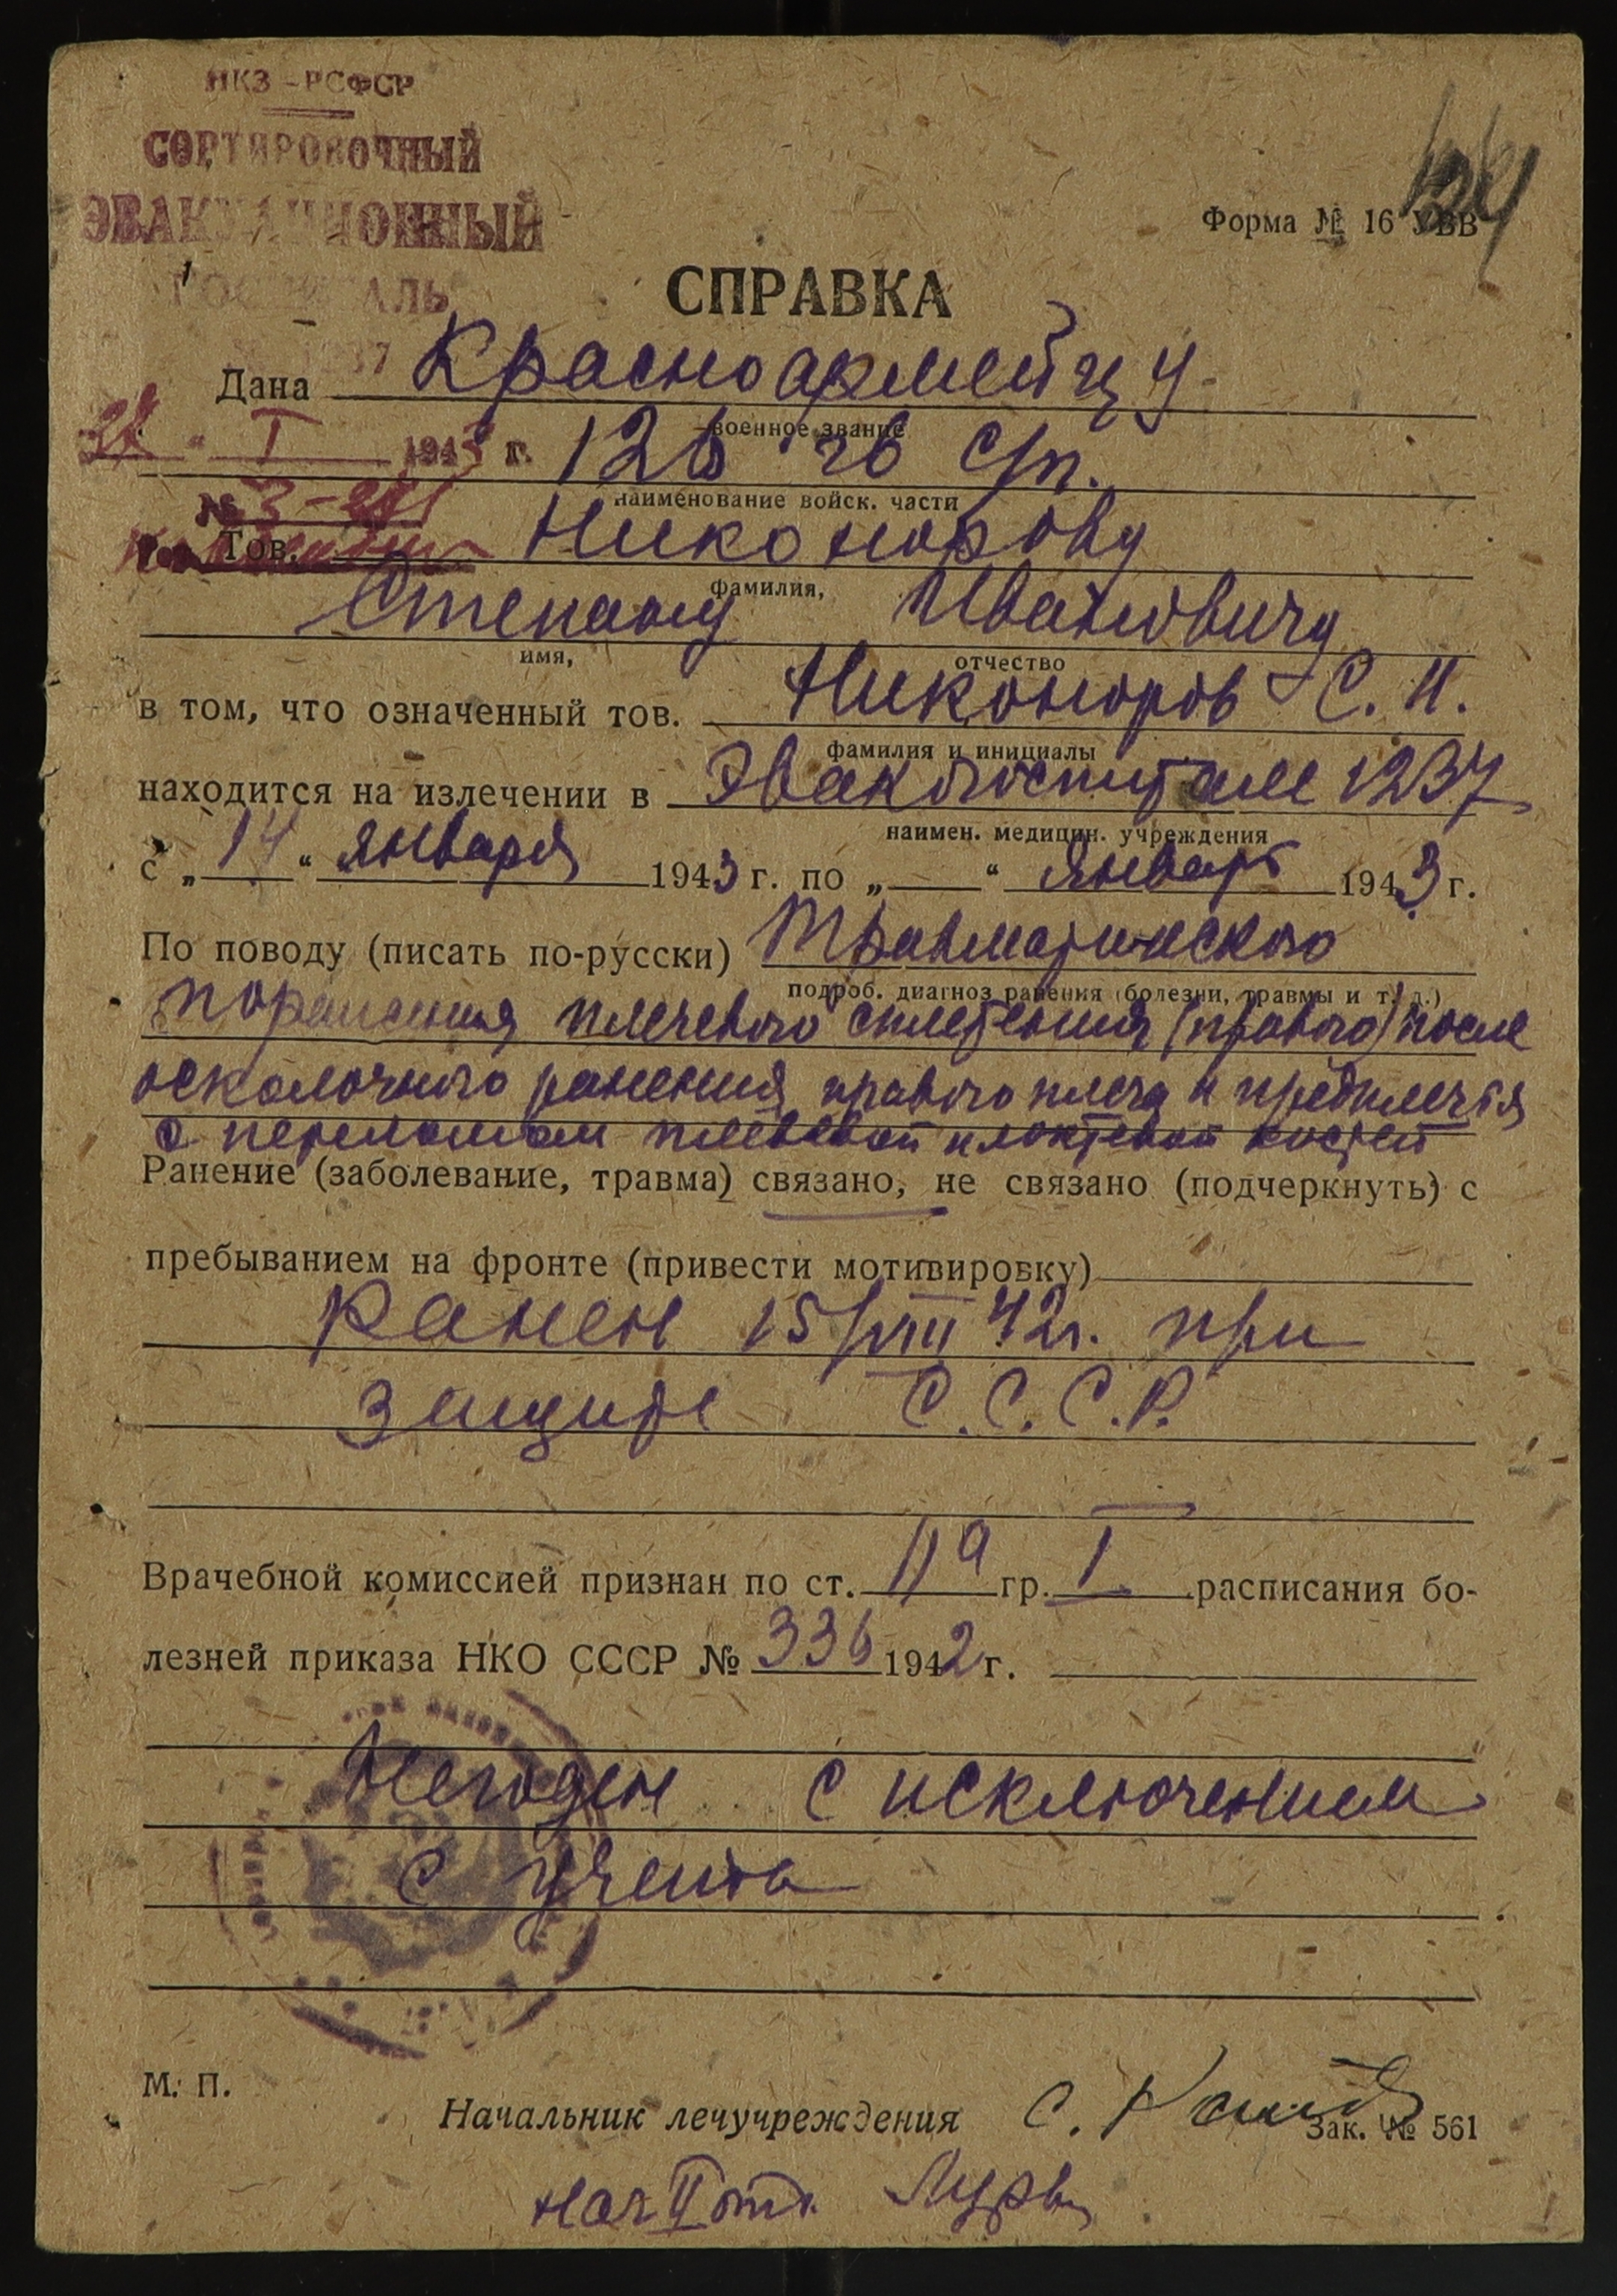 НКЗ - РСФСР
СОРТИРОВОЧНЫЙ
ЭВАКУАЦИОННЫЙ
ГОСПИТАЛЬ
1237
Форма № 16 УВВ
СПРАВКА
Дана Красноармейцу
военное звание
I 1943 г. 126 го с/п.
наименование войск. части
№ 3-
Тов. Никонорову
фамилия,
Степану Ивановичу
имя, отчество
в том, что означенный тов. Никоноров С. И.
фамилия и инициалы
находится на излечении в Эвакогоспитале 1237
наимен. медицин. учреждения
с „14“ января 1943 г. по „ “ январь 1943 г.
По поводу (писать по-русски) Травматического
подроб. диагноз ранения (болезни, травмы и т. д.)
поражения плечевого сплетения (правого) после
осколочного ранения правого плеча и предплечья
с переломом плечевой и локтевой костей
Ранение (заболевание, травма) связано, не связано (подчеркнуть) с
пребыванием на фронте (привести мотивировку)
Ранен 15/VIII 42г. при
защите С.С.С.Р.
Врачебной комиссией признан по ст. 11а гр. I расписания бо-
лезней приказа НКО СССР № 336 1942 г.
Негоден с исключением
с учета
М. П.
Начальник лечучреждения С.
Зак. № 561
нач II отд.